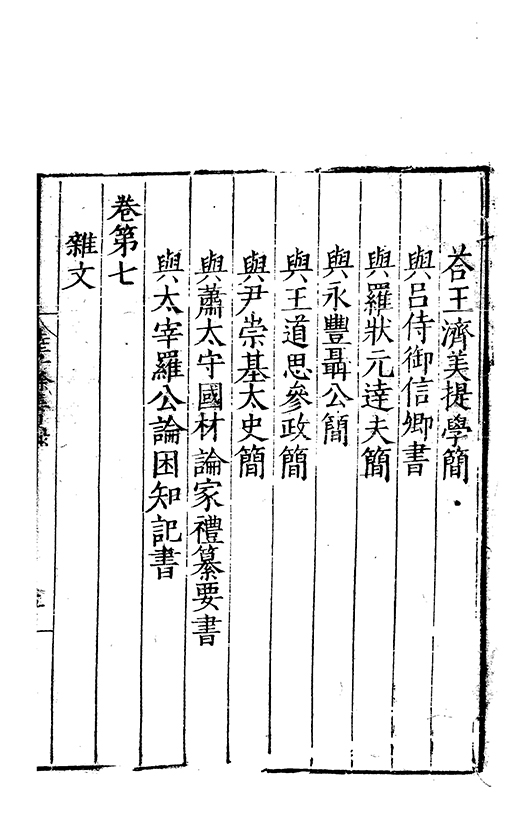 荅王濟美提學簡
與吕侍御信卿書
與羅狀元達夫簡
與永豐聶公簡
與王道思參政簡
與尹崇基太史簡
與蕭太守國材論家禮纂要書
與太宰羅公論困知記書
卷第七
雜文